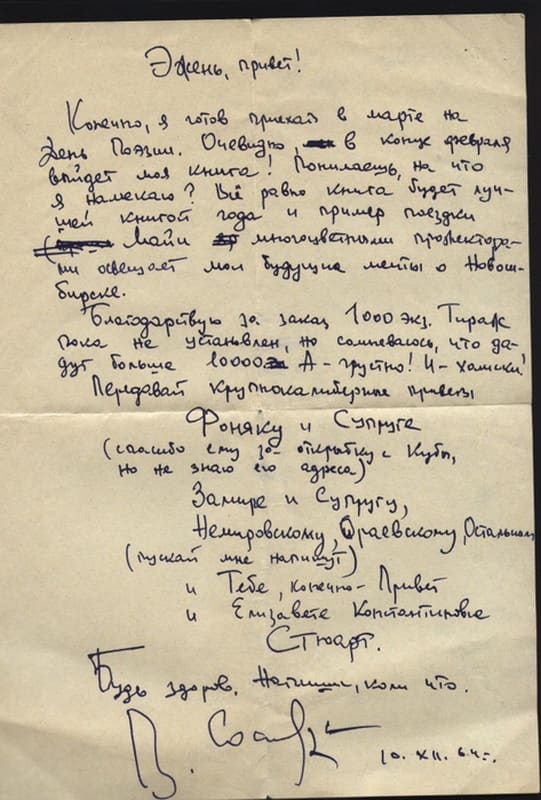 Эжень, привет!
Конечно, я готов приехать в марте на
День Поэзии. Очевидно, в конце февраля
выйдет моя книга! Понимаешь, на что
я намекаю? Всё равно книга будет луч-
шей книгой года и пример поездки
Майи многоцветными прожектора-
ми освещает мои будущие мечты о Новоси-
бирске.
Благодарствую за заказ 1000 экз. Тираж
пока не установлен, но сомневаюсь, что да-
дут больше 10000 А - грустно! И - хамски!
Передавай крупнокалиберные приветы
Фоняку и Супруге
(спасибо ему за открытку с Кубы,
но не знаю его адреса)
Замире и Супругу,
Немировскому, Раевскому, Остальным
(пускай мне напишут)
и Тебе, конечно - Привет
и Елизавете Константиновне
Стюарт.
Будь здоров. Напиши, коли что.
В. Сосн
10. XII. 64 г.